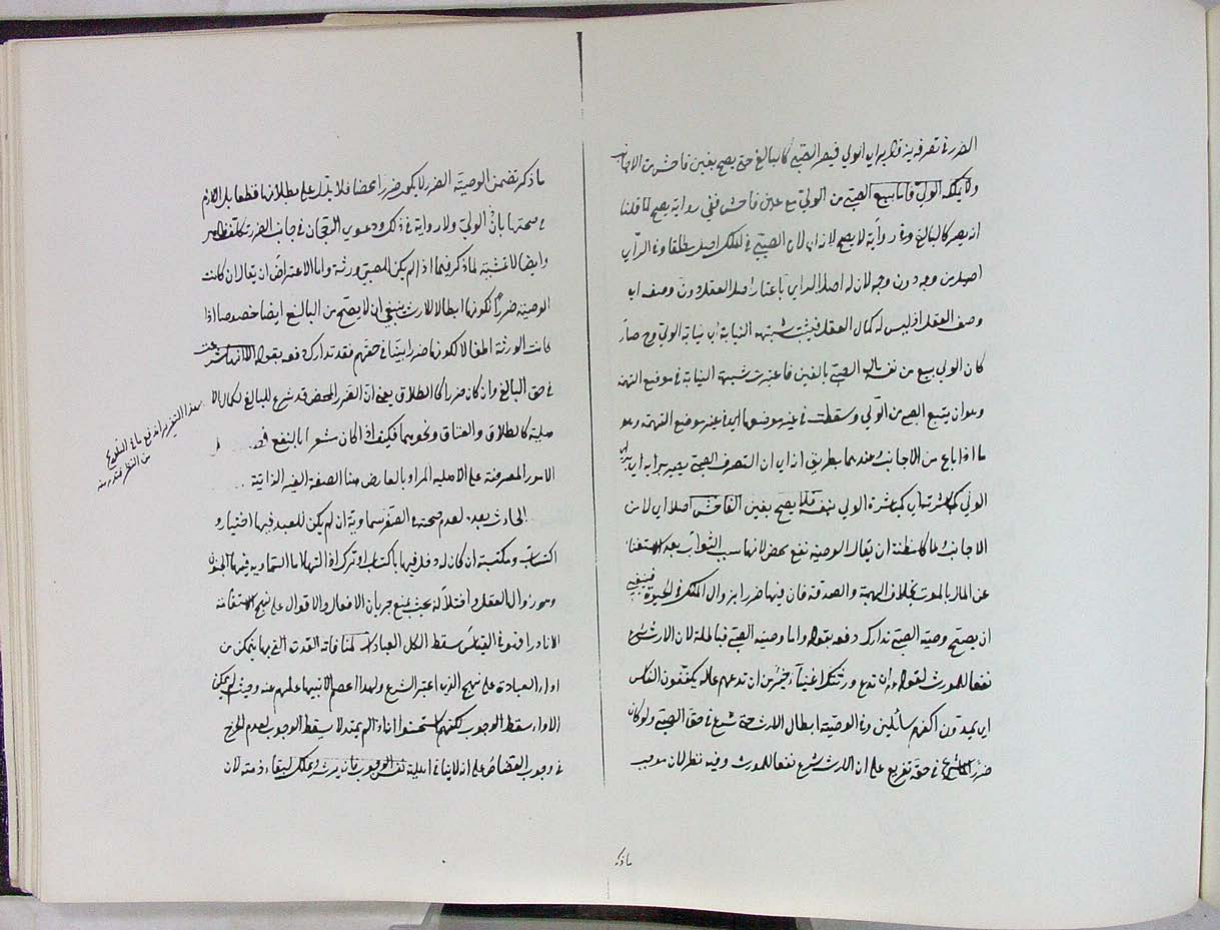 الضرر في تصرفه يزول براي الولي فيصير الصبي كالبالغ حتى يصح بغبن فاحش من الاجانب
ولا يملكه الولي فاما بيع الصبي من الولي مع غبن فاحش ففي رواية يصح لما قلنا
انه يصير كالبالغ وفي رواية لا يصح لانه اي لان الصبي في الملك اصيل مطلقا وفي الراي
اصيل من وجه دون وجه لان له اصل الراي باعتبار اصل العقل دون وصفه اي
وصف العقل اذ ليس له كمال العقل فيثبت شبهة النيابة اي نيابة الولي وح صار
كان الولي يبيع من نفسه مال الصبي بالغبن فاعتبرت شبهة النيابة في موضع التهمة
وهو ان يبيع الصبي من الولي وسقطت في غير موضعها اي في غير موضع التهمة وهو
ما اذا باع من الاجانب وعندهما بطريق انه اي ان التصرف الصبي يصير براي
الولي كمباشرته اي كمباشرة الولي بنفسه فلا يصح بغبن الفاحش اصلا اي لا من
الاجانب ولما كان مظنة ان يقال الوصية نفع محض لانها سبب الثواب بعد الاستغناء
عن المال بالموت بخلاف الهبة والصدقة فان فيها ضررا بزوال الملك في الحيوة فينبغي
ان يصح وصية الصبي تدارك دفعه بقوله واما وصية الصبي فباطلة لان الارث شرع
نفعا للمورث لقوله وان تدع ورثتك اغنياء خير من ان تدعهم عالة يتكففون الناس
اي يمدون اكفهم سائلين وفي الوصية ابطال الارث حتى شرع في حق الصبي ولو كان
ضررا لما شرع في حقه تفريع على ان الارث شرع نفعا للمورث وفيه نظر لان موجب
ماذكر
ماذكر تضمن الوصية الضرر لا يكون ضررا محضا فلا يدل على بطلانها قطعا بل الكلام
في صحتها باذن الولي ولا رواية في ذلك ودعوى الرجحان في جانب الضرر تكلف ظاهر
وايضا لا تمشية لما ذكر فيما اذا لم يكن للصبي ورثة واما الاعتراض ان يقال ان كانت
الوصية ضررا لكونها ابطالا للارث ينبغي ان لا يصح من البالغ ايضا خصوصا اذا
كانت الورثة اطفالا لكونها ضررا بينا في حقهم فقد تدارك دفعه بقوله الا انها شرعت
في حق البالغ وان كان ضررا كالطلاق يعني ان الضرر المحض قد شرع للبالغ لكمال الا
هلية كالطلاق والعتاق ونحوهما فكيف اذا كان مشوبا بالنفع
الامور المعترضة على الاهلية المراد بالعارض هنا الصفة الغير الذاتية
الحادث بعد لعدم صحته في الصغر سماوية ان لم يكن للعبد فيها اختيار و
اكتساب ومكتسبة ان كان له دخل فيها باكتساب او ترك ازالتها اما السماوية فمنها الجنون
وهو زوال العقل واختلاله بحيث يمنع جريان الافعال والاقوال على نهج الاستقامة
الا نادرا فهو في القياس مسقط لكل العبادات لمنافاته القدرة التي بها يتمكن من
اداء العبادة على نهج الذي اعتبر الشرع ولهذا عصم الانبياء عليهم عنه وحيث لم يمكن
الاداء سقط الوجوب لكنهم استحسنوا انه اذا لم يمتد لا يسقط الوجوب لعدم الحرج
في وجوب القضاء على انه لا ينافي اهلية نفس الوجوب فانه يرث ويملك لبقاء ذمته لان
بهذا التقرير اندفع ما في التلويح
من النظر فتدبر منه